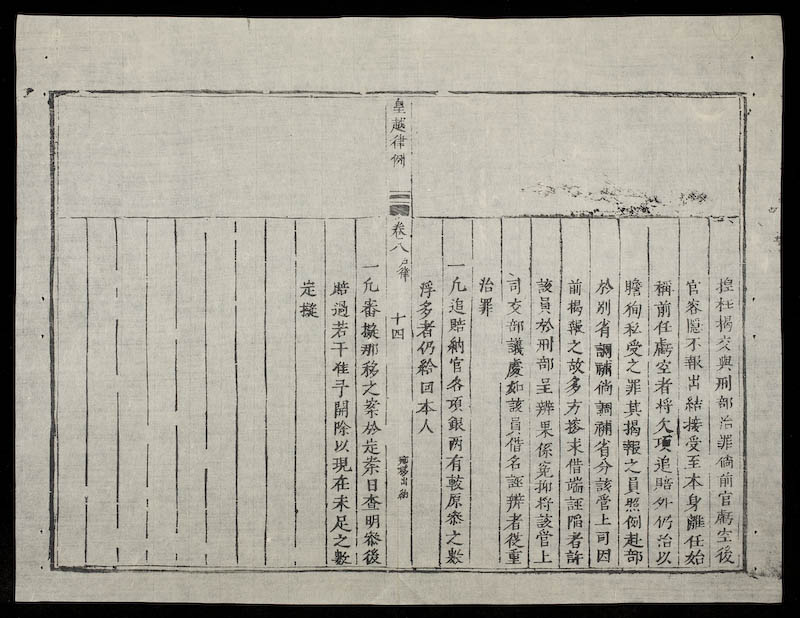 揑枉揭交與刑部治罪倘前官虧空後
官容隱不報出結接受至本身離任始
稱前任虧空者将欠項追賠外仍治以
瞻徇私受之罪其揭報之員照例赴部
於别省調補倘調補省分該管上司因
前揭報之故多方搜求借端誣陷者許
該員於刑部呈辨果係冤抑将該管上
司交部議處如該員借名誣辨者從重
治罪
一凡追賠納官各項銀两有較原参之數
浮多者仍給回本人
皇越律例 卷八 户律 十四 那移出納
一凡審擬那移之案於定案日查明参後
賠過若干准予開除以現在未足之數
定擬